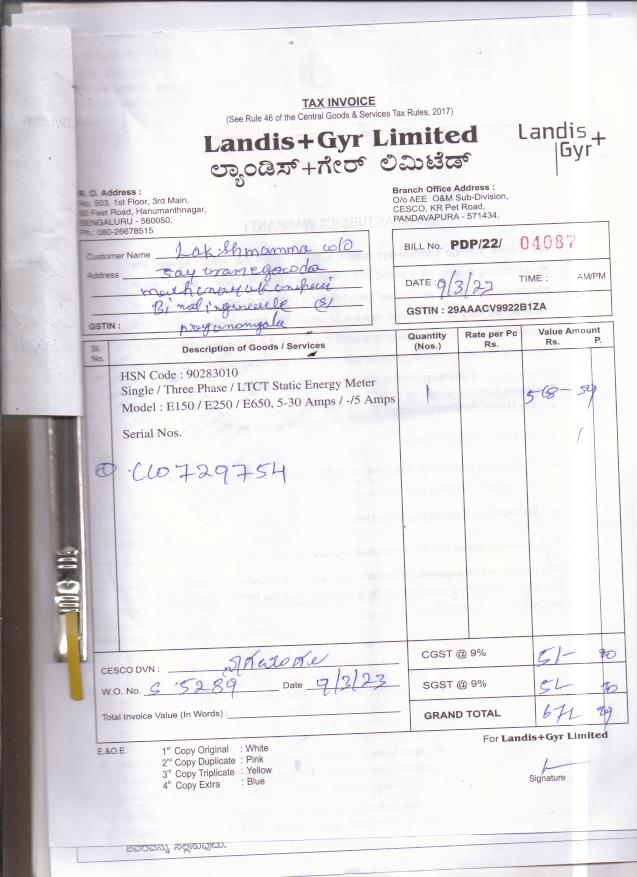 TAX INVOICE
(See Rule 46 of the Central Goods & Services Tax Rules, 2017)
Landis+Gyr Limited
ಲ್ಯಾಂಡಿಸ್+ಗೇರ್ ಲಿಮಿಟೆಡ್
Landis+
Gyr
R. O. Address :
No. 503, 1st Floor, 3rd Main,
50 Feet Road, Hanumanthnagar,
BENGALURU - 560050.
Ph.: 080-26678515
Branch Office Address :
O/o AEE O&M Sub-Division,
CESCO, KR Pet Road,
PANDAVAPURA - 571434.
Customer Name Lakshmamma w/o
Address
GSTIN :
BILL No. PDP/22/ 04087
DATE : 9/3/23 TIME : AM/PM
GSTIN : 29AAACV9922B1ZA
Sl. No. Description of Goods / Services Quantity (Nos.) Rate per Pc Rs. Value Amount Rs. P.
HSN Code : 90283010
Single / Three Phase / LTCT Static Energy Meter
Model : E150 / E250 / E650, 5-30 Amps / -/5 Amps 1 568-59
Serial Nos.
729754
CESCO DVN :
W.O. No. S 5289 Date 9/3/23
Total Invoice Value (In Words) :
CGST @ 9% 51-
SGST @ 9% 51-
GRAND TOTAL 671
E.&O.E.
1st Copy Original : White
2nd Copy Duplicate : Pink
3rd Copy Triplicate : Yellow
4th Copy Extra : Blue
For Landis+Gyr Limited
Signature